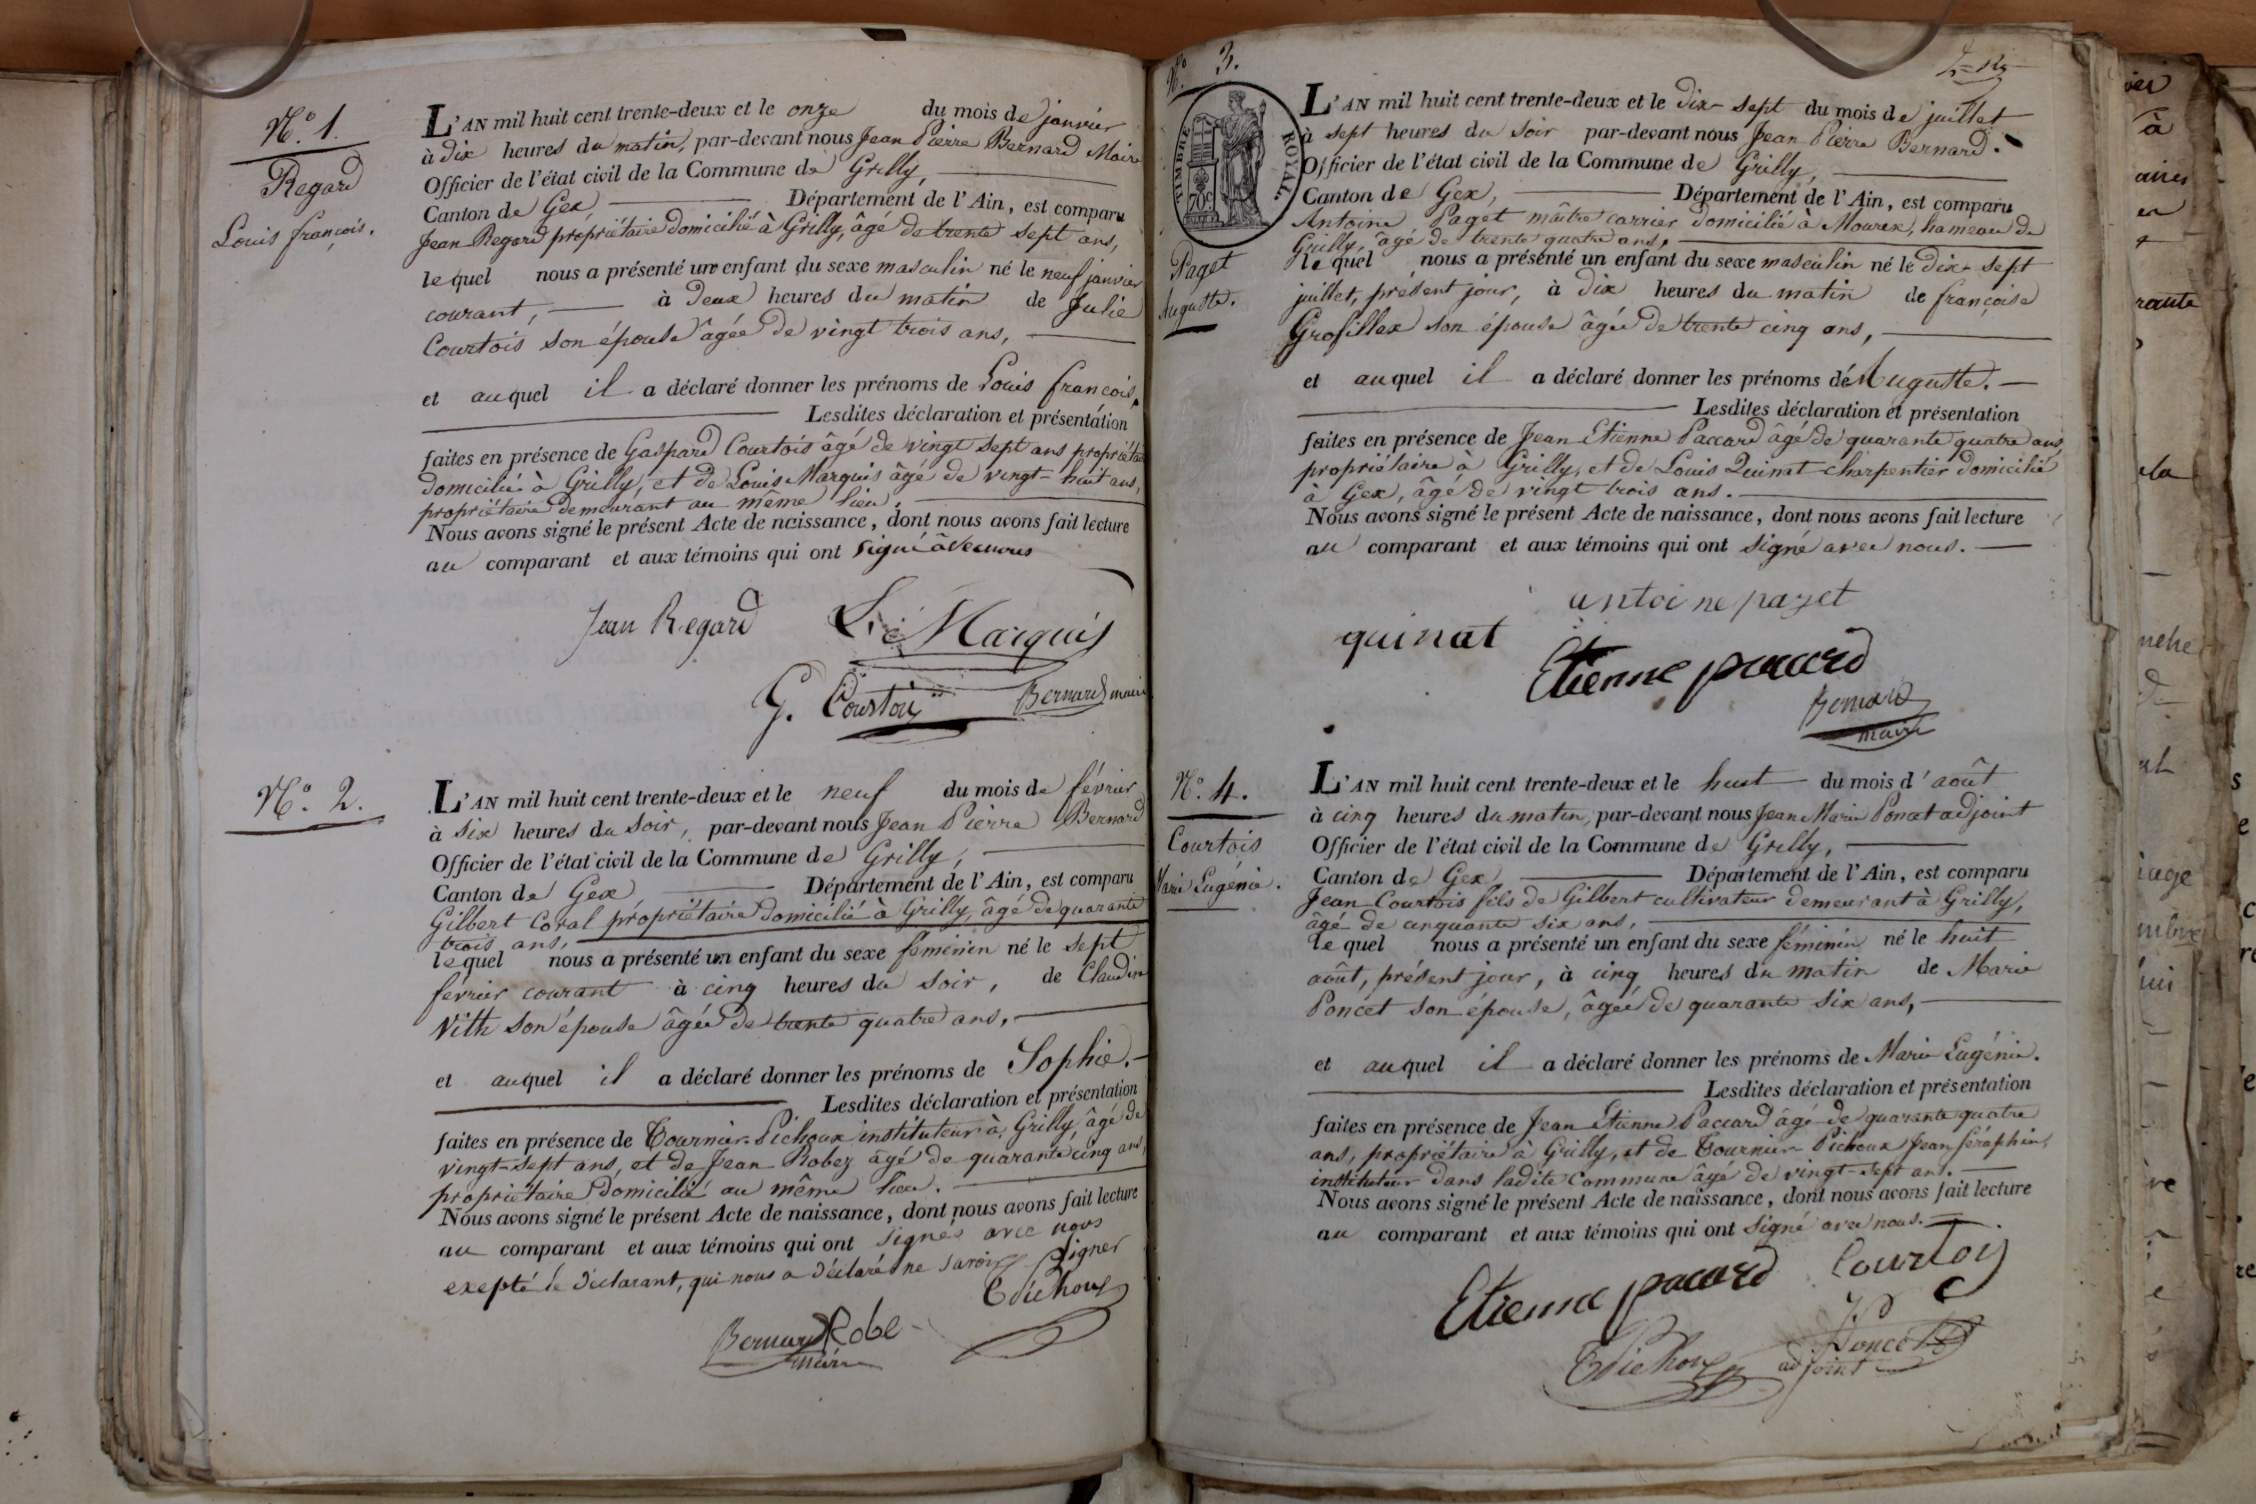 N.° 1.
Regard
Louis françois.
L'AN mil huit cent trente-deux et le onze du mois de janvier
à dix heures du matin, par-devant nous Jean Pierre Bernard Maire
Officier de l'état civil de la Commune de Grilly,
Canton de Gex Département de l'Ain, est comparu
Jean Regard propriétaire domicilié à Grilly, âgé de trente sept ans,
lequel nous a présenté un enfant du sexe masculin né le neuf janvier
courant, à deux heures du matin de Julie
Courtois son épouse âgée de vingt trois ans,
et auquel il a déclaré donner les prénoms de Louis françois,
Lesdites déclaration et présentation
faites en présence de Gaspard Courtois âgé de vingt sept ans propriétaire
domicilié à Grilly, et de Louis Marquis âgé de vingt-huit ans,
propriétaire demeurant au même lieu,
Nous avons signé le présent Acte de naissance, dont nous avons fait lecture
au comparant et aux témoins qui ont signé avec nous
Jean Regard Ls Marquis
G. Courtois Bernard maire
N.° 2.
L'AN mil huit cent trente-deux et le neuf du mois de février
à six heures du soir, par-devant nous Jean Pierre Bernard
Officier de l'état civil de la Commune de Grilly,
Canton de Gex Département de l'Ain, est comparu
Gilbert Coral propriétaire domicilié à Grilly, âgé de quarante
trois ans,
lequel nous a présenté un enfant du sexe féminin né le sept
février courant à cinq heures du soir, de Claudin
Vith son épouse âgée de trente quatre ans,
et auquel il a déclaré donner les prénoms de Sophie.
Lesdites déclaration et présentation
faites en présence de Tournier-Pichoux instituteur à Grilly, âgé de
vingt-sept ans, et de Jean Robez âgé de quarante cinq ans,
propriétaire domicilié au même lieu.
Nous avons signé le présent Acte de naissance, dont nous avons fait lecture
au comparant et aux témoins qui ont signés avec nous
exepté le déclarant, qui nous a déclaré ne savoir signer
TPichoux
Bernard Robe
maire
N.° 3.
TIMBRE ROYAL.
70c
Paget
Auguste.
L'AN mil huit cent trente-deux et le dix-sept du mois de juillet
à sept heures du soir par-devant nous Jean Pierre Bernard.
Officier de l'état civil de la Commune de Grilly,
Canton de Gex, Département de l'Ain, est comparu
Antoine Paget maître carrier domicilié à Mourex, hameau de
Grilly, âgé de trente quatre ans,
lequel nous a présenté un enfant du sexe masculin né le dix-sept
juillet, présent jour, à dix heures du matin de françoise
Grosfillex son épouse âgée de trente cinq ans,
et auquel il a déclaré donner les prénoms de Auguste.
Lesdites déclaration et présentation
faites en présence de Jean Etienne Paccard âgé de quarante quatre ans,
propriétaire à Grilly, et de Louis Quinat charpentier domicilié
à Gex, âgé de vingt trois ans.
Nous avons signé le présent Acte de naissance, dont nous avons fait lecture
au comparant et aux témoins qui ont signé avec nous.
antoine paget
quinat
Etienne paccard
Bernard
maire
N.° 4.
Courtois
Marie Eugénie.
L'AN mil huit cent trente-deux et le huit du mois d'août
à cinq heures du matin, par-devant nous Jean Marie Poncet adjoint
Officier de l'état civil de la Commune de Grilly,
Canton de Gex, Département de l'Ain, est comparu
Jean Courtois fils de Gilbert cultivateur demeurant à Grilly,
âgé de cinquante six ans,
lequel nous a présenté un enfant du sexe féminin né le huit
août, présent jour, à cinq heures du matin de Marie
Poncet son épouse, âgée de quarante six ans,
et auquel il a déclaré donner les prénoms de Marie Eugénie.
Lesdites déclaration et présentation
faites en présence de Jean Etienne Paccard âgé de quarante quatre
ans, propriétaire à Grilly, et de Tournier-Pichoux Jean Séraphin,
instituteur dans ladite commune âgé de vingt-sept ans.
Nous avons signé le présent Acte de naissance, dont nous avons fait lecture
au comparant et aux témoins qui ont signé avec nous.
Etienne paccard Courtois
TPichoux Poncet
adjoint